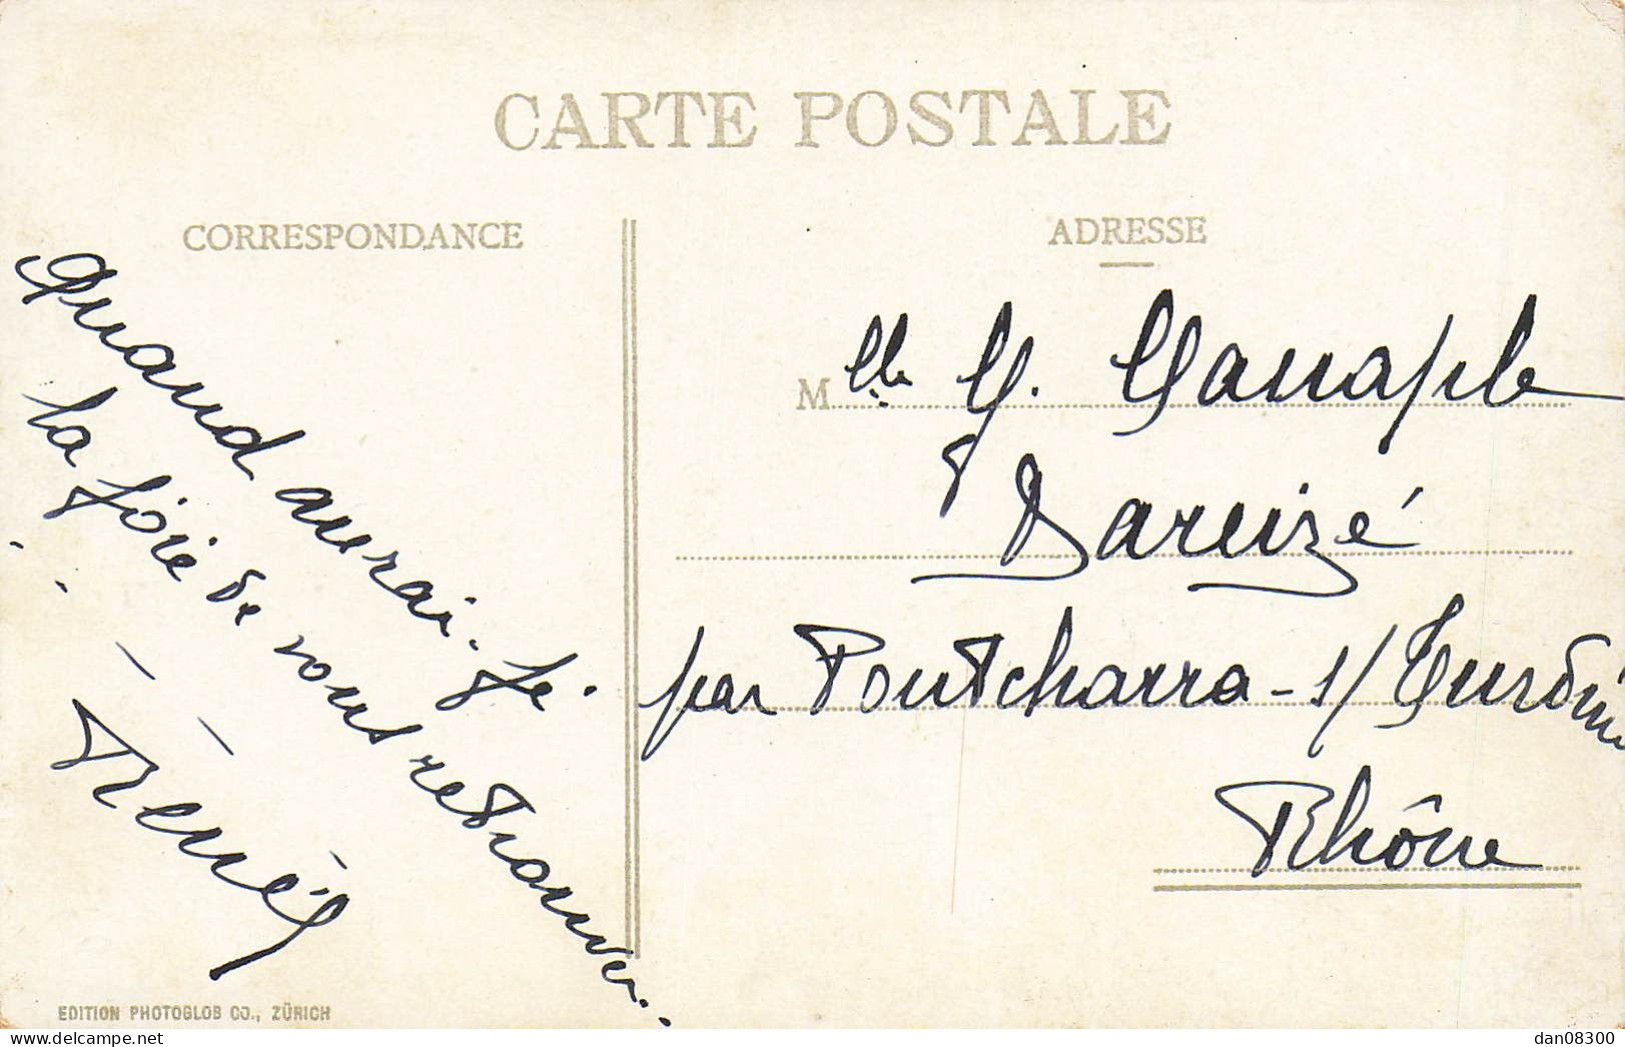 CARTE POSTALE
CORRESPONDANCE
ADRESSE
Quand aurai-je
la joie de vous retrouver.
Mlle G.
Dareizé
par Pontcharra-s/Turdine
Rhône
EDITION PHOTOGLOB CO., ZÜRICH
dan08300